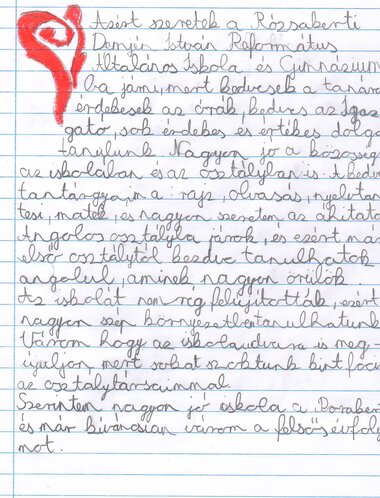 Azért szeretek a Rózsakerti
Demjén István Református
Általános Iskola és Gimnázium
ba járni, mert kedvesek a tanára
érdekesek az órák, kedves az Igaz
gató, sok érdekes és értékes dolgo
tanulunk. Nagyon jó a közösség
az iskolában és az osztályban is. A kedve
tantárgyaim a: rajz, olvasás, nyelvtan
tesi, matek, és nagyon szeretem az áhitato
Angolos osztályba járok, és ezért már
első osztálytól kezdve tanulhatok
angolul, aminek nagyon örülök
Az iskolát nem rég felújították, ezért
nagyon szép környezetben tanulhatunk
Várom hogy az iskolaudvara is meg-
újuljon, mert sokat szoktunk kint foci
az osztálytársaimmal.
Szerintem nagyon jó iskola a Rózsakert
és már kíváncsian várom a felsős évfoly
mot.